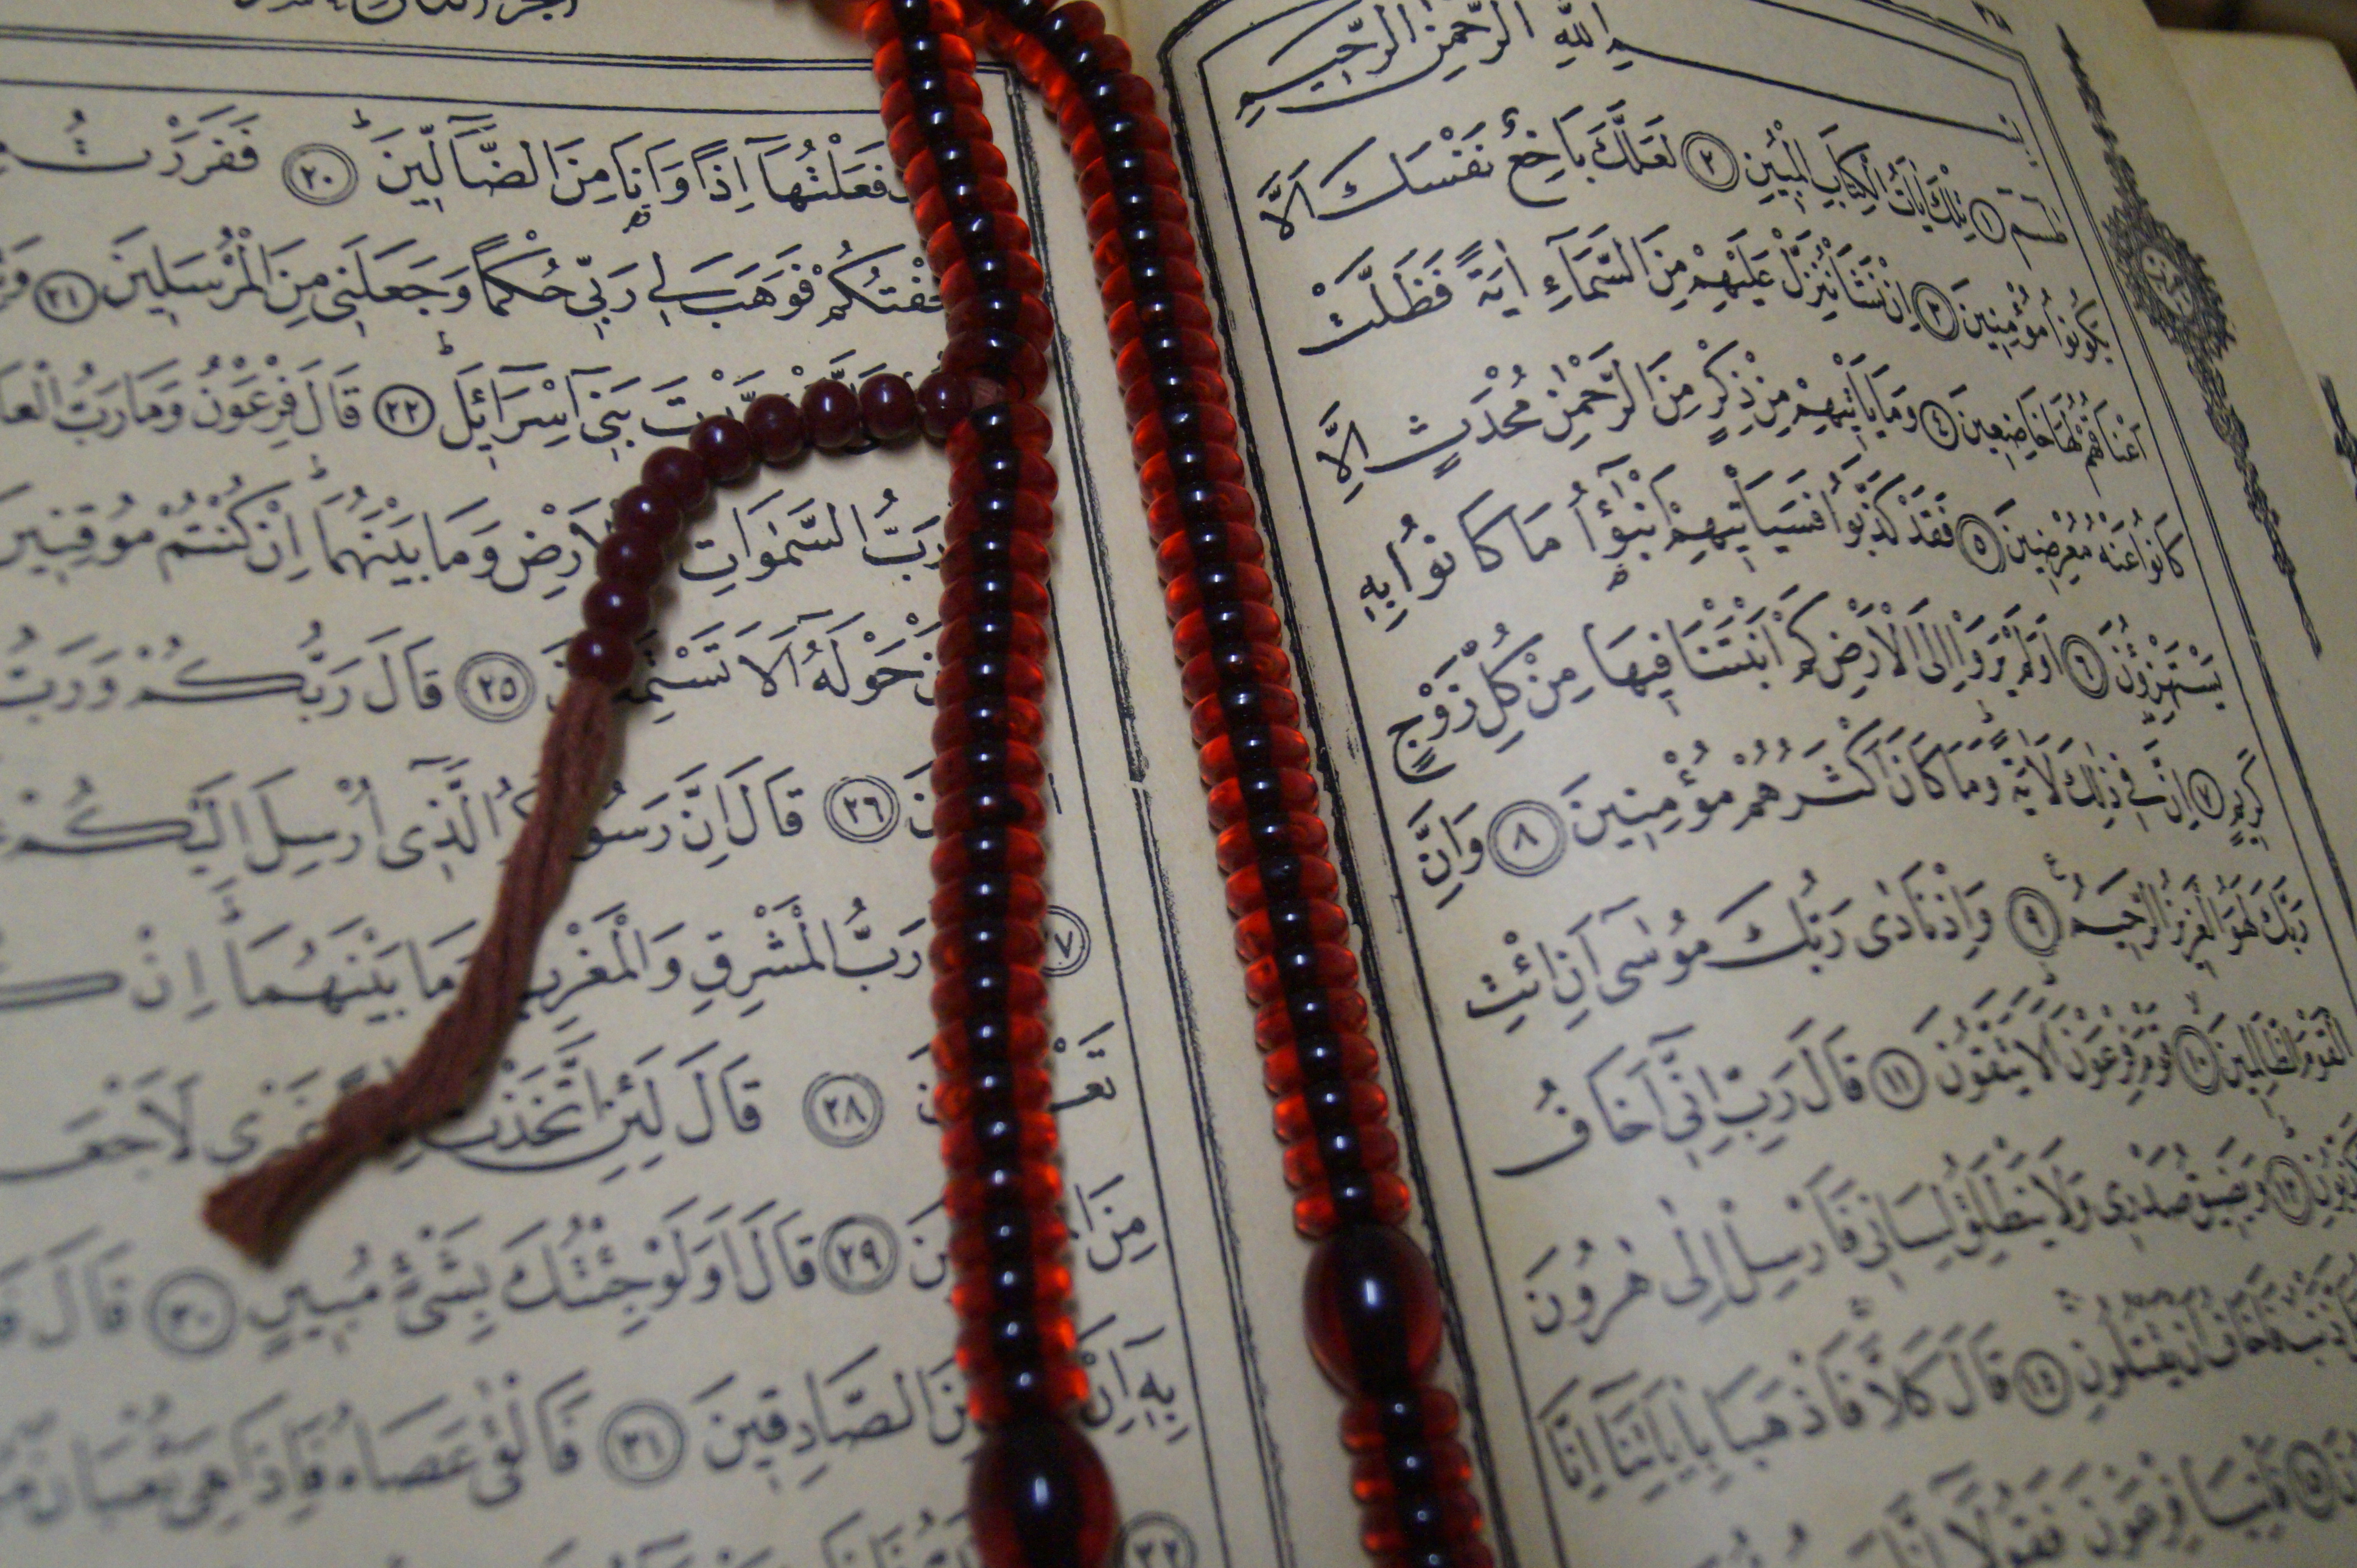 بِسْمِ اللّٰهِ الرَّحْمٰنِ الرَّحِيمِ
طٰسٓمٓ ١ تِلْكَ اٰيَاتُ الْكِتَابِ الْمُبِينِ ٢ لَعَلَّكَ بَاخِعٌ نَفْسَكَ اَلَّا
يَكُونُوا مُؤْمِنِينَ ٣ اِنْ نَشَأْ نُنَزِّلْ عَلَيْهِمْ مِنَ السَّمَٓاءِ اٰيَةً فَظَلَّتْ
اَعْنَاقُهُمْ لَهَا خَاضِعِينَ ٤ وَمَا يَأْتِيهِمْ مِنْ ذِكْرٍ مِنَ الرَّحْمٰنِ مُحْدَثٍ اِلَّا
كَانُوا عَنْهُ مُعْرِضِينَ ٥ فَقَدْ كَذَّبُوا فَسَيَأْتِيهِمْ اَنْبٰٓؤُا مَا كَانُوا بِهِ
يَسْتَهْزِؤُنَ ٦ اَوَلَمْ يَرَوْا اِلَى الْاَرْضِ كَمْ اَنْبَتْنَا فِيهَا مِنْ كُلِّ زَوْجٍ
كَرِيمٍ ٧ اِنَّ فِي ذٰلِكَ لَاٰيَةً وَمَا كَانَ اَكْثَرُهُمْ مُؤْمِنِينَ ٨ وَاِنَّ
رَبَّكَ لَهُوَ الْعَزِيزُ الرَّحِيمُ ٩ وَاِذْ نَادٰى رَبُّكَ مُوسٰٓى اَنِ ائْتِ
الْقَوْمَ الظَّالِمِينَ ١٠ قَوْمَ فِرْعَوْنَ اَلَا يَتَّقُونَ ١١ قَالَ رَبِّ اِنِّٓي اَخَافُ
١٢ وَيَضِيقُ صَدْرِي وَلَا يَنْطَلِقُ لِسَانِي فَاَرْسِلْ اِلٰى هٰرُونَ
ذَنْبٌ فَاَخَافُ اَنْ يَقْتُلُونِ ١٤ قَالَ كَلَّا فَاذْهَبَا بِاٰيَاتِنَٓا اِنَّا
١٥ فَأْتِيَا فِرْعَوْنَ فَقُولَٓا اِنَّا
فَعَلْتُهَٓا اِذًا وَاَنَا مِنَ الضَّٓالِّينَ ٢٠ فَفَرَرْتُ
خِفْتُكُمْ فَوَهَبَ لِي رَبِّي حُكْمًا وَجَعَلَنِي مِنَ الْمُرْسَلِينَ ٢١
بَنِٓي اِسْرَٓائِلَ ٢٢ قَالَ فِرْعَوْنُ وَمَا رَبُّ الْعَا
رَبُّ السَّمٰوَاتِ وَالْاَرْضِ وَمَا بَيْنَهُمَا اِنْ كُنْتُمْ مُوقِنِينَ
حَوْلَهُٓ اَلَا تَسْتَمِعُونَ ٢٥ قَالَ رَبُّكُمْ وَرَبُّ
٢٦ قَالَ اِنَّ رَسُولَكُمُ الَّذِٓي اُرْسِلَ اِلَيْكُمْ
رَبُّ الْمَشْرِقِ وَالْمَغْرِبِ وَمَا بَيْنَهُمَا اِنْ
٢٨ قَالَ لَئِنِ اتَّخَذْتَ غَيْرِي لَاَجْعَ
مِنَ ٢٩ قَالَ اَوَلَوْ جِئْتُكَ بِشَيْءٍ مُبِينٍ ٣٠ قَالَ
بِهِٓ اِنْ الصَّادِقِينَ ٣١ فَاَلْقٰى عَصَاهُ فَاِذَا هِيَ ثُعْبَانٌ
٣٢